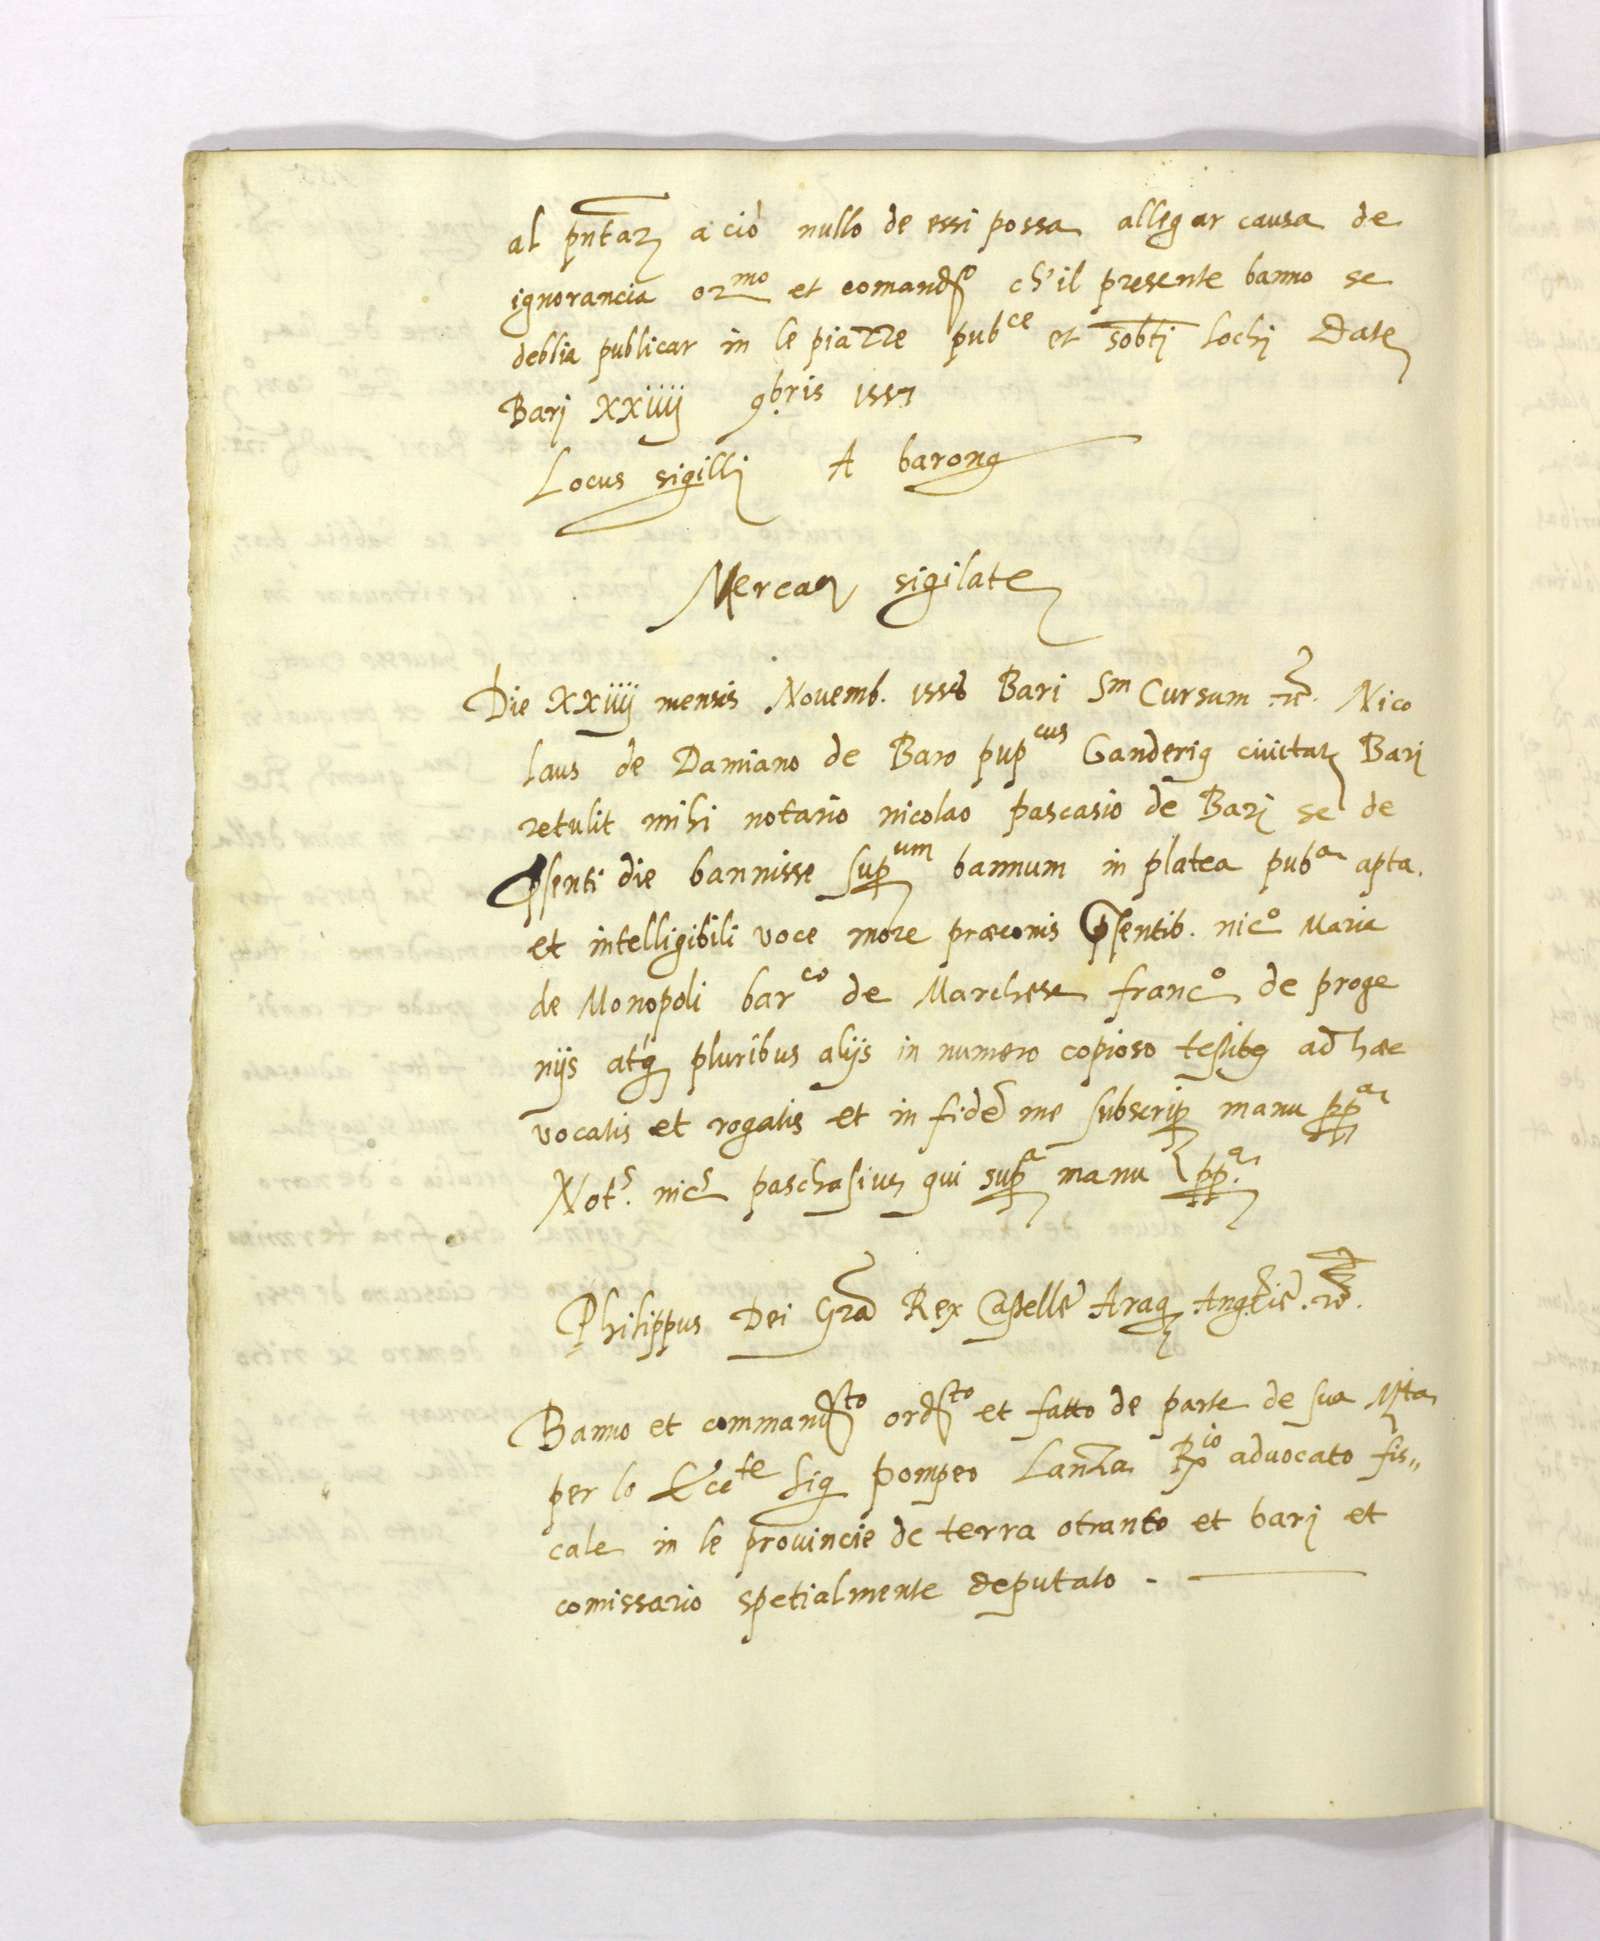 al pntar aciò nullo de essi possa allegar causa de
ignorancia or.mo et comando ch'il presente banno se
debbia publicar in le piazze pub.ce et soliti lochi Date
Barj XXiiij 9bris 1557
Locus sigilli A barone
Mercar sigilate
Die XXiiij mensis Novemb. 1558 Bari Sm Cursum Nico
laus de Damiano de Baro pup.cus civitat Bari
retulit mihi notario nicolao pascasio de Barj se de
psenti die bannisse sup.um bannum in platea pub.a apta.
et intelligibili voce more præconis psentib. nic.o Maria
de Monopoli bar.co de Marchese franc.o de proge
nijs atq pluribus alijs in numero copioso testibq ad hæc
vocatis et rogatis et in fide me subscrip manu pp.a
Not.s nic.s paschasius qui sup.a manu pp.a
Philippus Dei Gra Rex Castelle Arag Anglie
Banno et command.to ord.to et fatto de parte de sua Mta
per lo Ecc.te Sig Pompeo Lanza R.io advocato fis„
cale in le provincie de terra otranto et barj et
comissario spetialmente deputato -